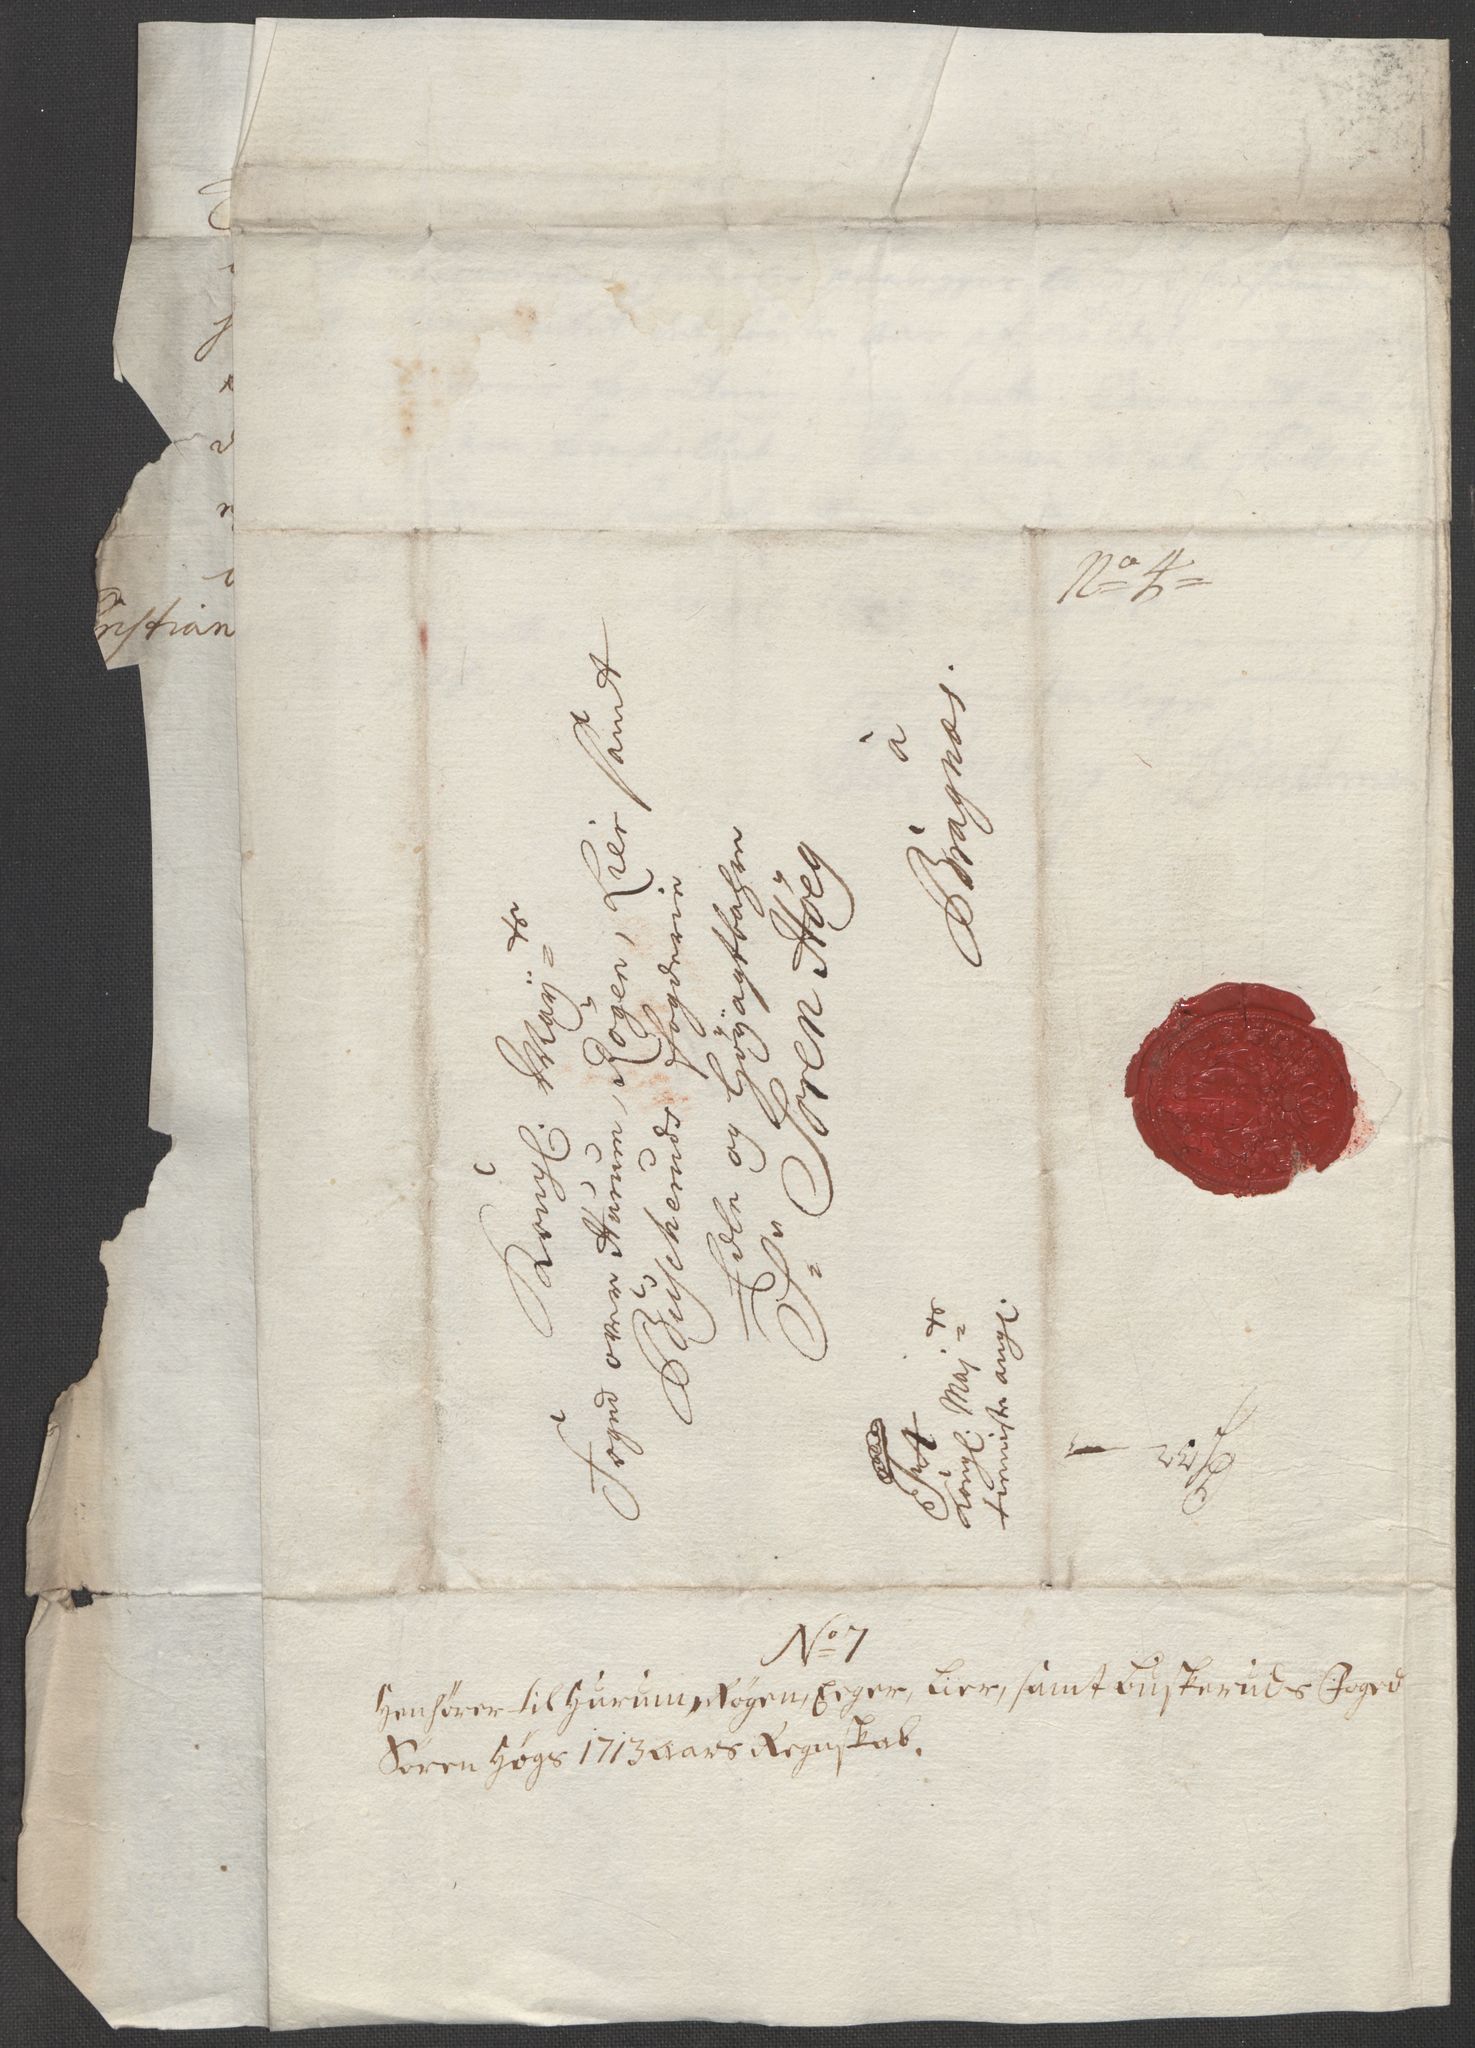 No 4
Kongl. Mayts
Foged over Hurum, Røgen, Lier samt
Buskeruds fogderie
Edle og Høyagtbahre
Sr Soren Høeg
à
Bragnes.
Kongl: Majts
tieniste angl:
No 7
Henhører til Hurum, Røgen, Eeger, Lier, samt Buskeruds Foged
Søren Høgs 1713 aars Regnskab.
ristian